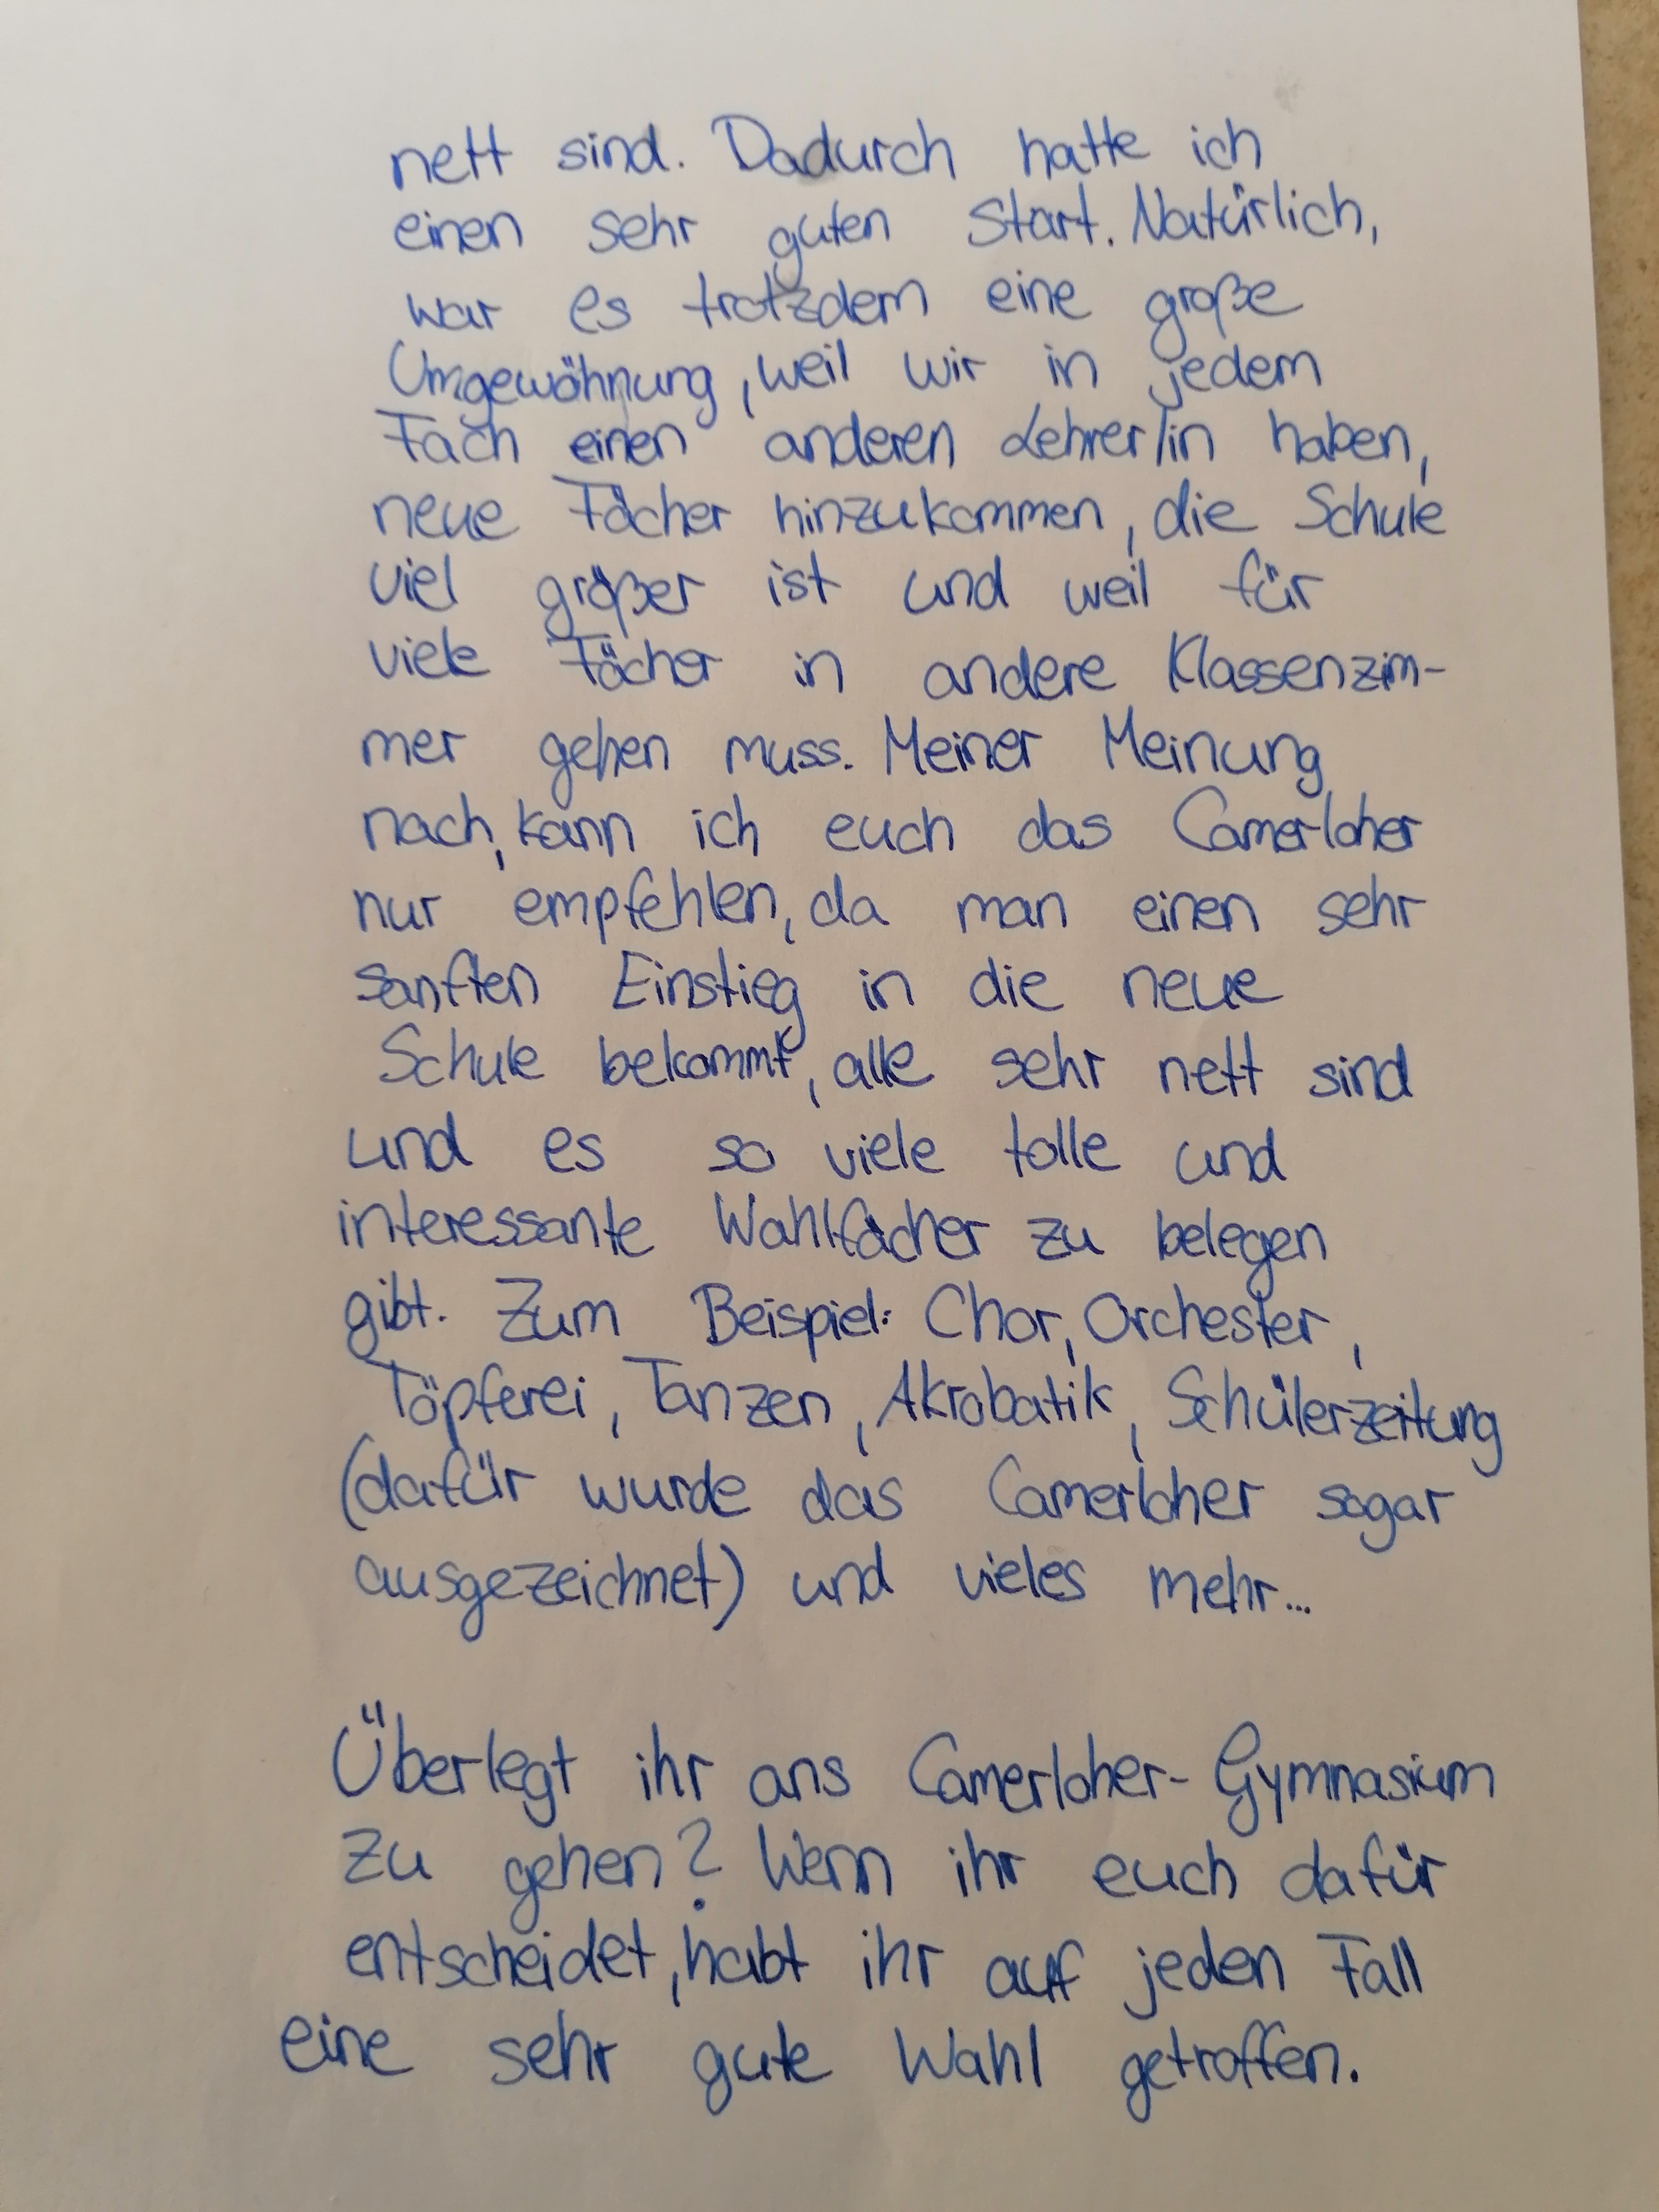 nett sind. Dadurch hatte ich
einen sehr guten Start. Natürlich,
war es trotzdem eine große
Umgewöhnung, weil wir in jedem
Fach einen anderen Lehrer/in haben,
neue Fächer hinzukommen, die Schule
viel größer ist und weil für
viele Fächer in andere Klassenzim-
mer gehen muss. Meiner Meinung
nach, kann ich euch das Camerloher
nur empfehlen, da man einen sehr
sanften Einstieg in die neue
Schule bekommt, alle sehr nett sind
und es so viele tolle und
interessante Wahlfächer zu belegen
gibt. Zum Beispiel: Chor, Orchester,
Töpferei, Tanzen, Akrobatik, Schülerzeitung
(dafür wurde das Camerloher sogar
ausgezeichnet) und vieles mehr...
Überlegt ihr ans Camerloher-Gymnasium
zu gehen? Wenn ihr euch dafür
entscheidet, habt ihr auf jeden Fall
eine sehr gute Wahl getroffen.